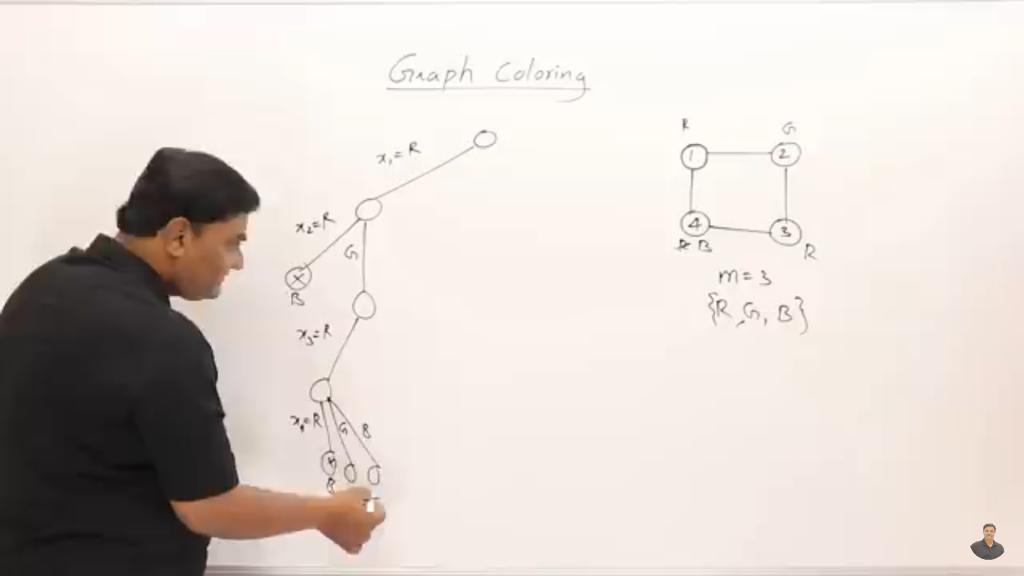 Graph Coloring
x₁=R
x₂=R
G
X
B
x₃=R
x₄=R
G
B
X
B
R
G
1
2
4
3
R B
R
m=3
{R, G, B}